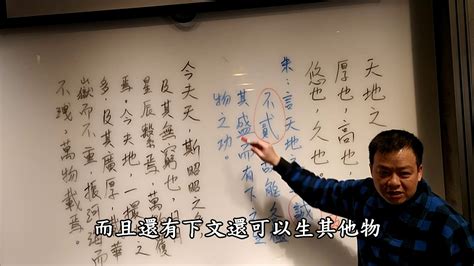 天地之
厚也,高也,
悠也,久也。
朱:言天地之 誠
不貳,故能各極
其盛,而有下
物之功。
今夫天,斯昭昭之
及其無窮也,日
星辰繫焉,萬 覆
焉。今夫地,一
多,及其廣厚, 華
嶽而不重,振河 而
不洩,萬物載焉。
而且還有下文還可以生其他物